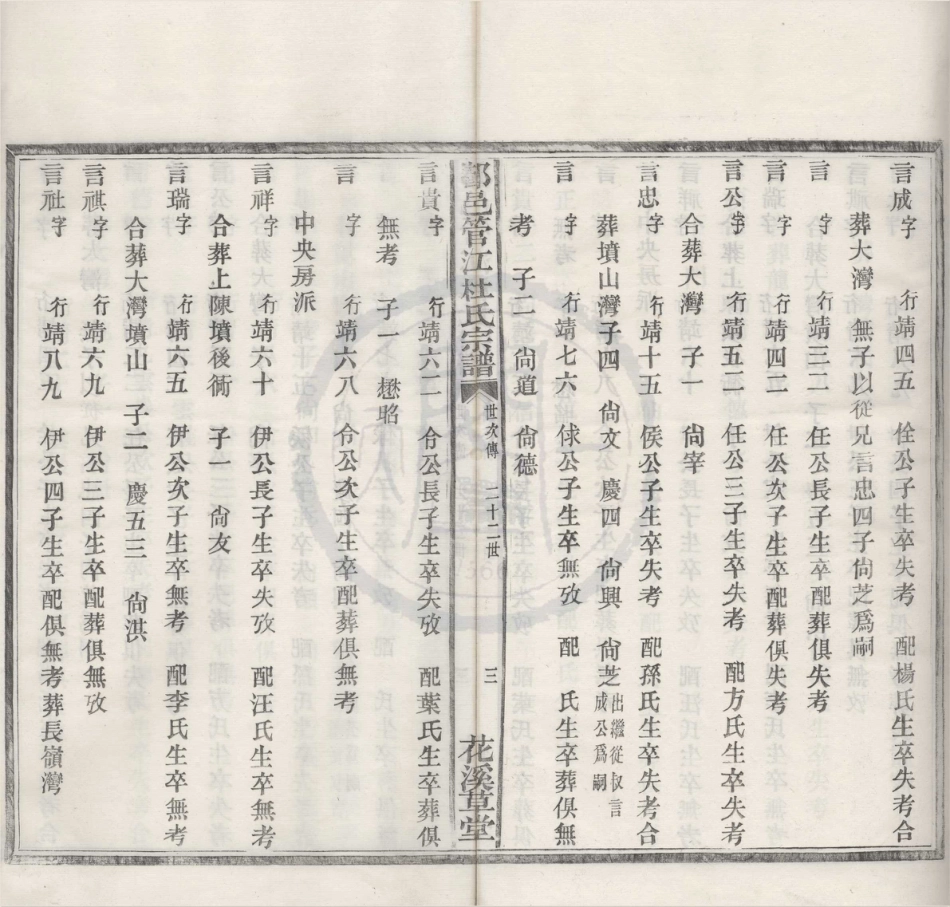 言成字 行靖四五 佺公子生卒失考 配楊氏生卒失考合
葬大灣 無子以從兄言忠四子尙芝爲嗣
言 字 行靖三三 任公長子生卒配葬俱失考
言 字 行靖四三 任公次子生卒配葬俱失考
言公字 行靖五二 任公三子生卒失考 配方氏生卒失考
合葬大灣 子一 尙宰
言忠字 行靖十五 侯公子生卒失考 配孫氏生卒失考合
葬墳山灣子四 尙文 慶四 尙興 尙芝出繼從叔言成公爲嗣
言 字 行靖七六 俅公子生卒無攷 配 氏生卒葬俱無
考 子二 尙道 尙德
鄞邑管江杜氏宗譜 世次傳 二十二世 三 花溪草堂
言貴字 行靖六二 令公長子生卒失攷 配葉氏生卒葬俱
無考 子一 懋昭
言 字 行靖六八 令公次子生卒配葬俱無考
中央房派
言祥字 行靖六十 伊公長子生卒失攷 配汪氏生卒無考
合葬上陳墳後衖 子一 尙友
言瑞字 行靖六五 伊公次子生卒無考 配李氏生卒無考
合葬大灣墳山 子二 慶五三 尙洪
言祺字 行靖六九 伊公三子生卒配葬俱無攷
言祉字 行靖八九 伊公四子生卒配俱無考葬長嶺灣